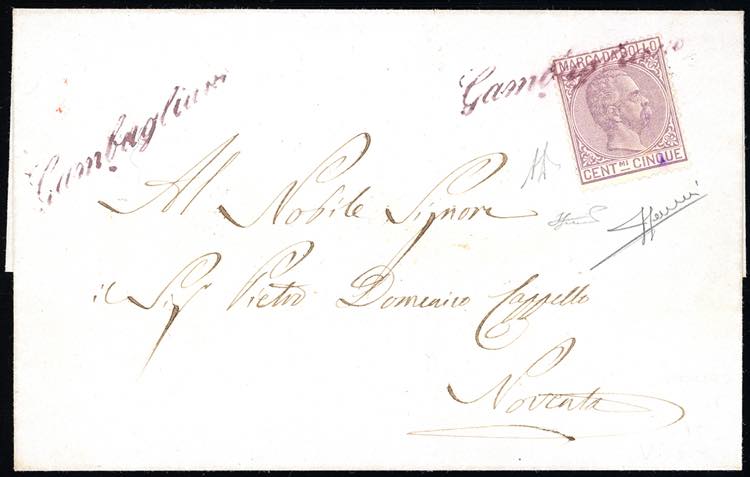 Gambagliani
MARCA DA BOLLO
CENT.MI CINQUE
Al Nobile Signore
il Sigr Pietro Domenico Cappello
Noventa